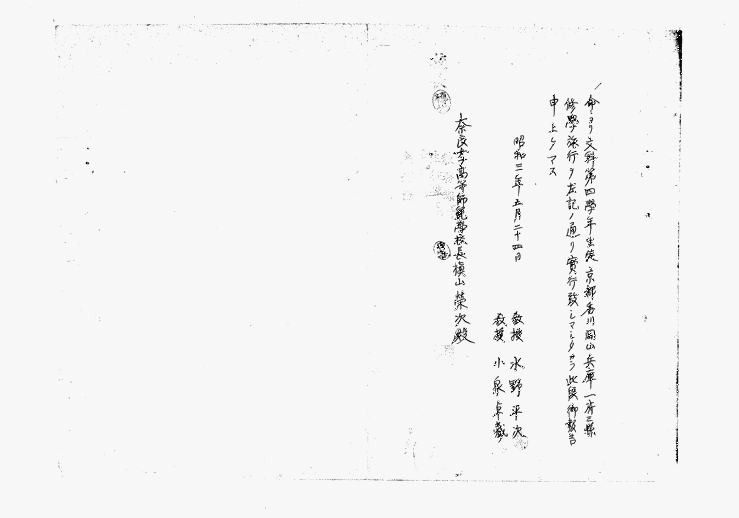 命ニヨリ文科第四學年生徒京都香川岡山兵庫一府三縣
修學旅行ヲ左記ノ通リ實行致シマシタカラ此段御報告
申上ケマス
昭和三年五月二十四日
教授 水野平次
教授 小泉卓藏
奈良女子高等師範學校長槇山榮次殿